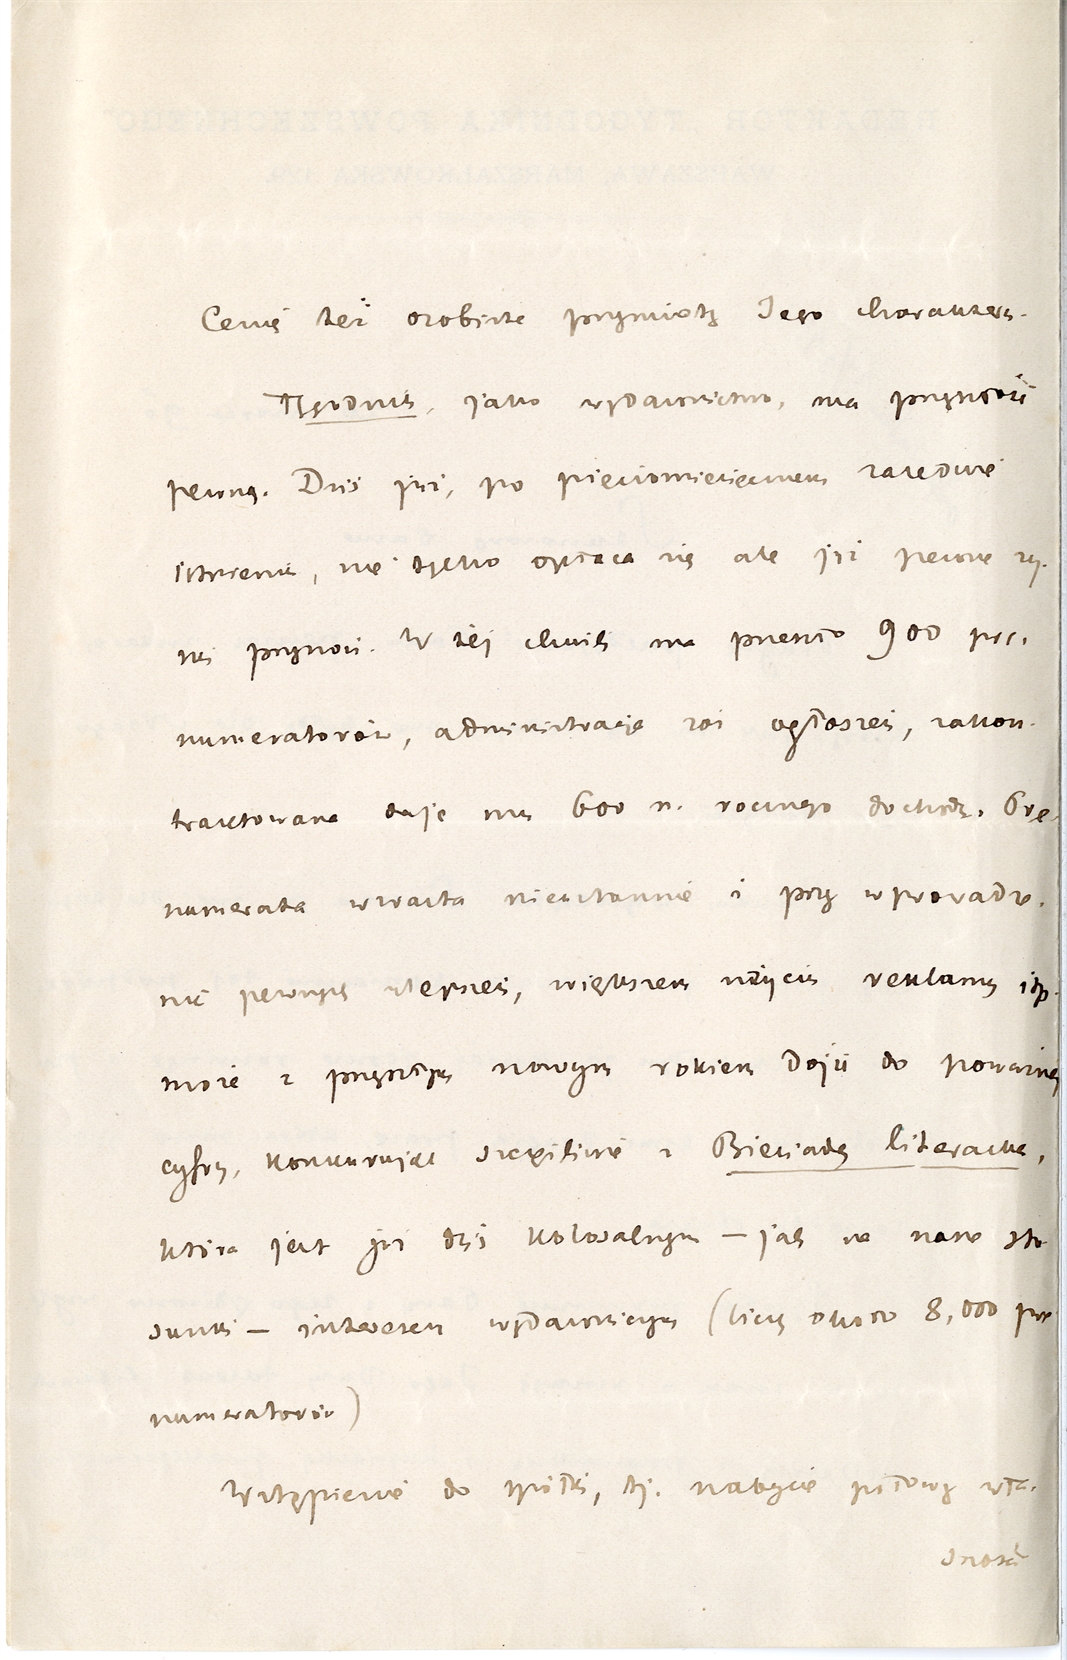 Cenię też osobiste przymioty Jego charakteru.
Tygodnik, jako wydawnictwo, ma przyszłość
pewną. Dziś już, po pięciomiesięcznem zaledwie
istnieniu, nie tylko opłaca się ale już pewne zy-
ski przynosi. W tej chwili ma przeszło 900 pre-
numeratorów, administracja zaś ogłoszeń, zakon-
traktowana daje mu 600 rs. rocznego dochodu. Pre-
numerata wzrasta nieustannie i przy wprowadze-
niu pewnych ulepszeń, większem użyciu reklamy itp.
może z przyszłym nowym rokiem dojść do poważnej
cyfry, konkurując szczęśliwie z Biesiadą literacką,
która jest już dziś kolosalnym — jak na nasze sto-
sunki — interesem wydawniczym (liczy około 8,000 pre
numeratorów)
Wstąpienie do spółki, tj. nabycie połowy wła-
sności